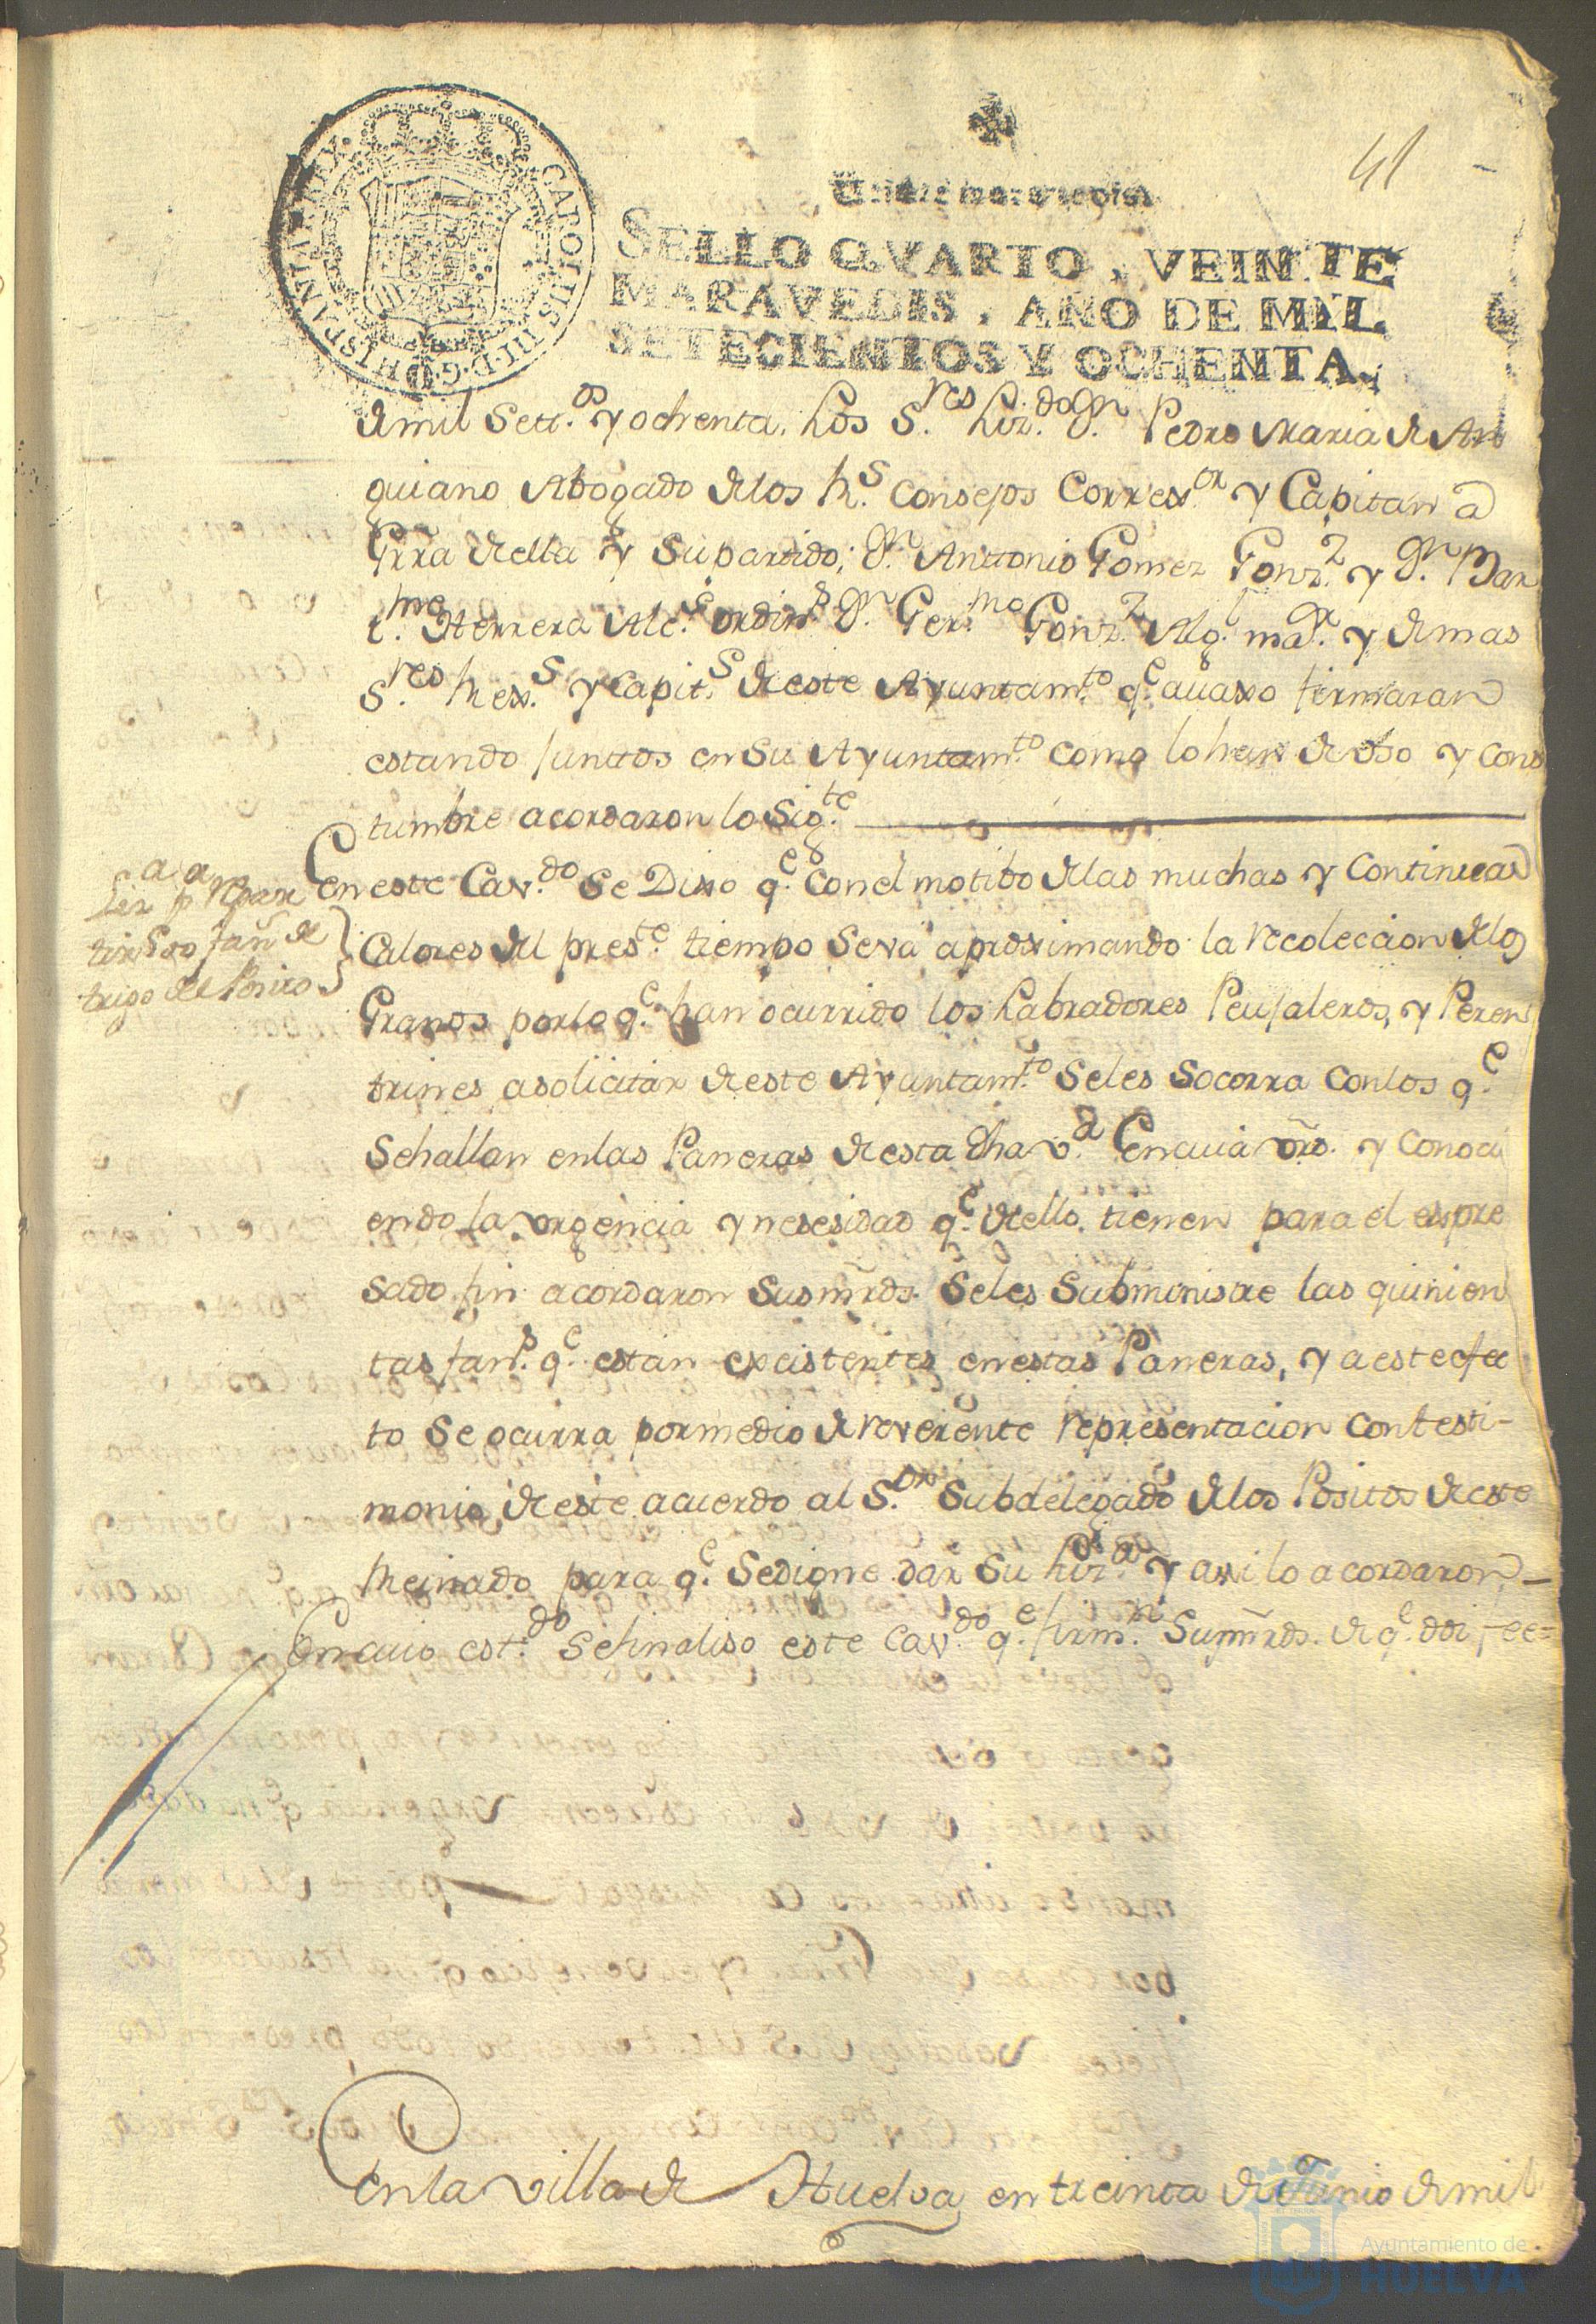 41
Veinte maravedis.
SELLO QVARTO, VEINTE
MARAVEDIS, AÑO DE MIL
SETECIENTOS Y OCHENTA.
CAROLUS III D G HISPANIAR REX
de mil Sett.os y ochenta. Los S.res Liz.do Dn. Pedro Maria de An
guiano Abogado de los Rs. Consejos Correx.or y Capitan a
Grra de ella y su partido; Dn. Anttonio Gomez Gonz.z y Dn. Bar
t.me Herrera Alc.s ordin.s Dn. Ger.mo Gonz.z Alg.l ma.or y demas
S.res Rex.s y Capit.s de este Ayuntam.to q.e auaxo firmaran
estando junttos en su Ayuntam.to como lo han de vso y cons
tumbre acordaron lo Sig.te
En este Cav.do se Dixo q.e con el motibo de las muchas y Continuas
Calores del pres.te tiempo se va aproximando la recoleccion de los
Granos por lo q.e han ocurrido los Labradores Peujaleros, y Peren
trines a solicitar de este Ayuntam.to se les socorra con los q.e
se hallan en las Paneras de esta dha v.a En cuia vrd. y conoci
endo la vrgencia y nesesidad q.e de ello tienen para el expre
sado fin acordaron sus mrds. se les subministre las quinien
tas fan.s q.e estan existentes en estas Paneras, y a este efec
to se ocurra por medio de reverente representacion con testi-
monio de este acuerdo al S.or Subdelegado de los Positos de este
Reinado para q.e se digne dar su liz.a y assi lo acordaron
En cuio est.do se finaliso este Cav.do q.e firm.n sus mrds. de q.e doi fee=
Liz.a p.a repar
tir 500 fan.s de
trigo del Posito
En la villa de Huelva en treinta de Junio de mil
Ayuntamiento de
HUELVA